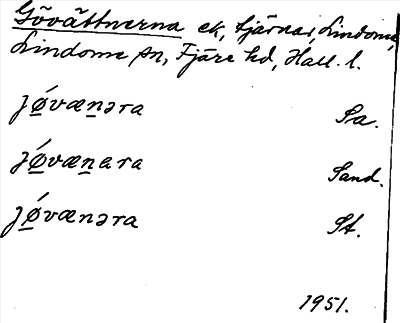 Gövättnerna ek, tjärnar, Lindome,
Lindome sn, Fjäre hd, Hall. l.
jǿ̠væn̠əra Sa.
jǿ̠væn̠ara Sand.
jǿ̠vænəra St.
1951.